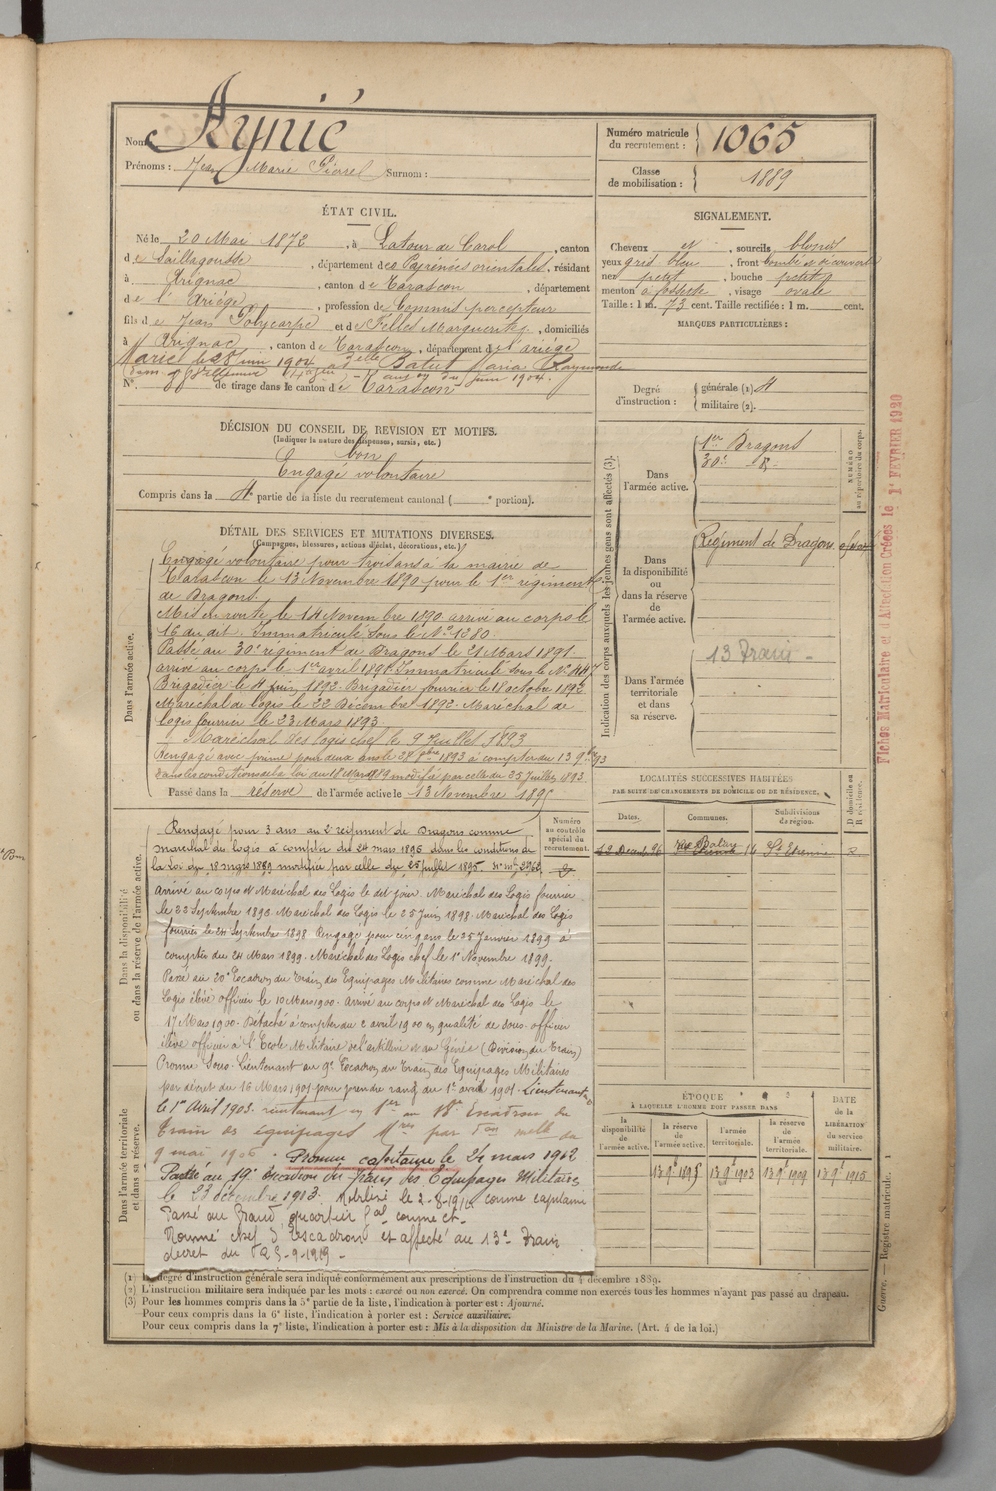 Nom: Aynié
Prénoms: Jean Marie Pierre Surnom:
Numéro matricule du recrutement: 1065
Classe de mobilisation: 1889
ÉTAT CIVIL.
Né le 20 Mai 1872, à Latour de Carol, canton
de Saillagousse, département des Pyrénées orientales, résidant
à Arignac, canton de Tarascon, département
de l'Ariège, profession de Commis percepteur
fils de Jean Polycarpe et de Marguerite, domiciliés
à Arignac, canton de Tarascon, département de l'ariège
Marié le 28 Juin 1904 à Delle Maria Raymonde
Juin 1904.
N° de tirage dans le canton de Tarascon
SIGNALEMENT.
Cheveux et, sourcils blonds
yeux gris bleu, front bombé et découvert
nez petit, bouche petite
menton à fossette, visage ovale
Taille: 1 m. 73 cent. Taille rectifiée: 1 m. cent.
MARQUES PARTICULIÈRES:
Degré d'instruction: générale (1) 4
militaire (2).
DÉCISION DU CONSEIL DE REVISION ET MOTIFS.
(Indiquer la nature des dispenses, sursis, etc.)
bon
Engagé volontaire
Compris dans la 4e partie de la liste du recrutement cantonal ( e portion).
DÉTAIL DES SERVICES ET MUTATIONS DIVERSES.
(Campagnes, blessures, actions d'éclat, décorations, etc.)
Dans l'armée active.
Engagé volontaire pour trois ans à la mairie de
Tarascon le 13 Novembre 1890 pour le 1er régiment
de Dragons.
Mis en route le 14 Novembre 1890 arrivé au corps le
16 du dit. Immatriculé sous le No 1280.
Passé au 30e régiment de Dragons le 21 Mars 1891
arrivé au corps le 1er avril 1891. Immatriculé sous le No 447
Brigadier le 4 Juin 1892. Brigadier fourrier le 18 octobre 1892
Maréchal des logis le 22 Décembre 1892. Maréchal des
logis fourrier le 23 Mars 1893.
Maréchal des logis chef le 9 Juillet 1893
Rengagé avec prime pour deux ans le 1893 à compter du 13 9bre 93
dans les conditions de la loi du 18 Mars 1889 modifié par celle du 25 Juillet 1893.
Passé dans la réserve de l'armée active le 13 Novembre 1895
Dans la disponibilité ou dans la réserve de l'armée active.
Numéro au contrôle spécial du recrutement.
Rengagé pour 3 ans au 2e régiment de Dragons comme
maréchal des logis à compter du 24 mars 1896 dans les conditions de
la Loi du 18 mars 1889 modifiée par celle du 25 juillet 1895.
Arrivé au corps et Maréchal des Logis le dit jour. Maréchal des Logis fourrier
le 23 Septembre 1896. Maréchal des Logis le 25 Juin 1898. Maréchal des Logis
fourrier le 24 Septembre 1898. Rengagé pour cinq ans le 25 Janvier 1899 à
compter du 24 Mars 1899. Maréchal des Logis chef le 1er Novembre 1899.
Passé au 20e Escadron du Train des Equipages Militaires comme Maréchal des
Logis élève officier le 10 Mars 1900. Arrivé au corps et Maréchal des Logis le
17 Mars 1900. Détaché à compter du 2 avril 1900 en qualité de sous-officier
élève officier à l'Ecole Militaire de l'artillerie et du Génie (Division du Train)
Promu Sous-Lieutenant au 9e Escadron du Train des Equipages Militaires
par décret du 16 Mars 1901 pour prendre rang du 1er avril 1901. Lieutenant
le 1er Avril 1903. Lieutenant en 1er au 18e Escadron du
Train des équipages Mres par don melle du
9 mai 1906. Promu capitaine le 24 mars 1912
Passé au 19e escadron du Train des Equipages Militaires
le 23 décembre 1913. Mobilisé le 2-8-1914 comme capitaine
Passé au Grand quartier Gal comme ct.
Nommé chef d'escadrons et affecté au 13e Train
décret du 25-9-1919
Dans l'armée territoriale et dans sa réserve.
Indication des corps auxquels les jeunes gens sont affectés (3).
NUMÉRO au répertoire du corps.
Dans l'armée active.
1er Dragons
30e d°
Dans la disponibilité ou dans la réserve de l'armée active.
Régiment de Dragons
Dans l'armée territoriale et dans sa réserve.
13 Train
LOCALITÉS SUCCESSIVES HABITÉES
PAR SUITE DE CHANGEMENTS DE DOMICILE OU DE RÉSIDENCE.
Dates. Communes. Subdivisions de région. D domicile ou R résidence.
St Etienne R
ÉPOQUE
À LAQUELLE L'HOMME DOIT PASSER DANS
DATE de la LIBÉRATION du service militaire.
la disponibilité de l'armée active. la réserve de l'armée active. l'armée territoriale. la réserve de l'armée territoriale.
13 9e 1893 13 9e 1903 13 9e 1909 13 9e 1915
Fiches Matriculaire et d'Affectation Créées le 1er FEVRIER 1920
Guerre. — Registre matricule. 1
(1) Le degré d'instruction générale sera indiqué conformément aux prescriptions de l'instruction du 4 décembre 1889.
(2) L'instruction militaire sera indiquée par les mots: exercé ou non exercé. On comprendra comme non exercés tous les hommes n'ayant pas passé au drapeau.
(3) Pour les hommes compris dans la 5e partie de la liste, l'indication à porter est: Ajourné.
Pour ceux compris dans la 6e liste, l'indication à porter est: Service auxiliaire.
Pour ceux compris dans la 7e liste, l'indication à porter est: Mis à la disposition du Ministre de la Marine. (Art. 4 de la loi.)